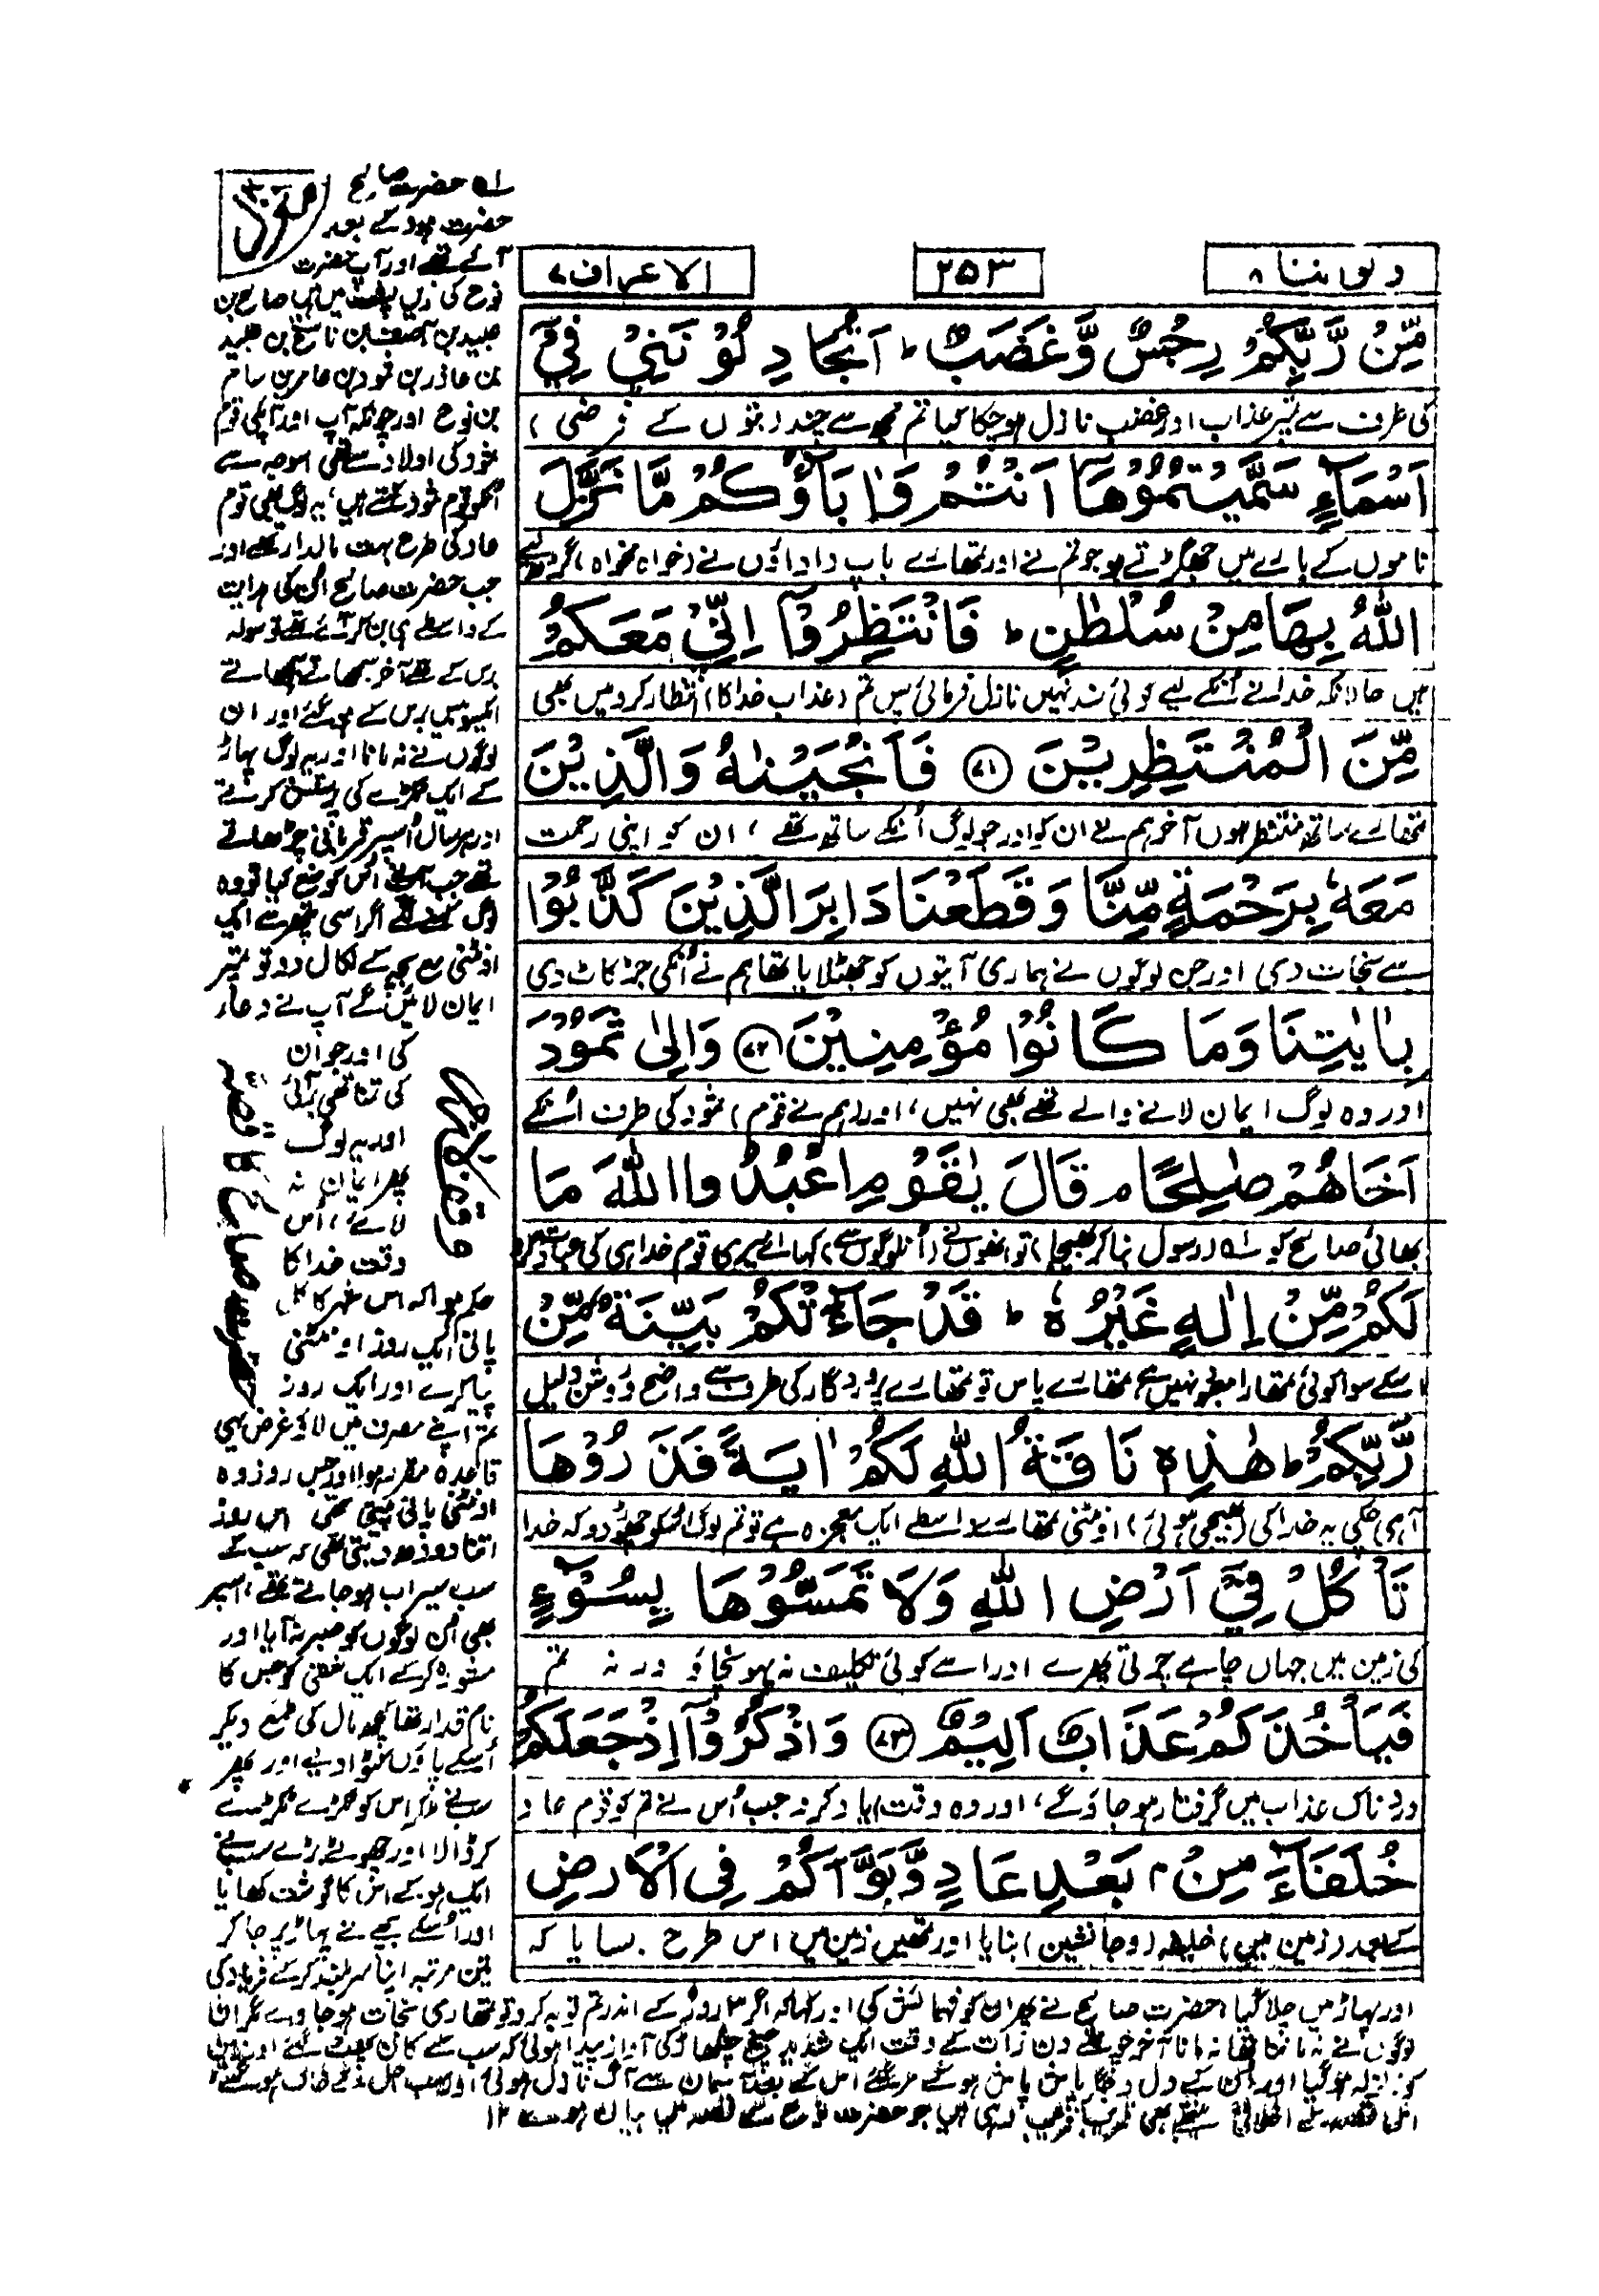 ولو اننا ۸
۲۵۳
الاعراف ۷
مِّنْ رَّبِّكُمْ رِجْسٌ وَّغَضَبٌ ؕ اَتُجَادِلُوْنَنِیْ فِیْۤ
کی طرف سے تم پر عذاب اور غضب نازل ہو چکا کیا تم مجھ سے چند (بتوں کے فرضی)
اَسْمَآءٍ سَمَّیْتُمُوْهَاۤ اَنْتُمْ وَاٰبَآؤُكُمْ مَّا نَزَّلَ
ناموں کے بارے میں جھگڑتے ہو جو تم نے اور تمھارے باپ داداؤں نے (خواہ مخواہ) گڑھ لیے
اللّٰهُ بِهَا مِنْ سُلْطٰنٍ ؕ فَانْتَظِرُوْۤا اِنِّیْ مَعَكُمْ
ہیں حالانکہ خدا نے انکے لیے کوئی سند نہیں نازل فرمائی پس تم (عذاب خدا کا) انتظار کرو میں بھی
مِّنَ الْمُنْتَظِرِیْنَ ۷۱ فَاَنْجَیْنٰهُ وَالَّذِیْنَ
تمھارے ساتھ منتظر ہوں آخر ہم نے ان کو اور جو لوگ اُنکے ساتھ تھے، ان کو اپنی رحمت
مَعَهٗ بِرَحْمَةٍ مِّنَّا وَقَطَعْنَا دَابِرَ الَّذِیْنَ كَذَّبُوْا
سے نجات دی اور جن لوگوں نے ہماری آیتوں کو جھٹلایا تھا ہم نے اُنکی جڑ کاٹ دی
بِاٰیٰتِنَا وَمَا كَانُوْا مُؤْمِنِیْنَ ۷۲ وَاِلٰی ثَمُوْدَ
اور وہ لوگ ایمان لانے والے تھے بھی نہیں، اور (ہم نے قوم) ثمود کی طرف اُنکے
اَخَاهُمْ صٰلِحًا ۘ قَالَ یٰقَوْمِ اعْبُدُوا اللّٰهَ مَا
بھائی صالح کو (رسول بنا کر بھیجا) تو انھوں نے (اُن لوگوں سے) کہا اے میری قوم خدا ہی کی عبادت کرو
لَكُمْ مِّنْ اِلٰهٍ غَیْرُهٗ ؕ قَدْ جَآءَتْكُمْ بَیِّنَةٌ مِّنْ
اسکے سوا کوئی تمھارا معبود نہیں ہے تمھارے پاس تو تمھارے پروردگار کی طرف سے واضح و روشن دلیل
رَّبِّكُمْ ؕ هٰذِهٖ نَاقَةُ اللّٰهِ لَكُمْ اٰیَةً فَذَرُوْهَا
آ ہی چکی یہ خدا کی (بھیجی ہوئی) اونٹنی تمھارے واسطے ایک معجزہ ہے تو تم لوگ اسکو چھوڑ دو کہ خدا
تَاْكُلْ فِیْۤ اَرْضِ اللّٰهِ وَلَا تَمَسُّوْهَا بِسُوْٓءٍ
کی زمین میں جہاں چاہے چرتی پھرے اور اسے کوئی تکلیف نہ پہونچاؤ ورنہ تم
فَیَاْخُذَكُمْ عَذَابٌ اَلِیْمٌ ۷۳ وَاذْكُرُوْۤا اِذْ جَعَلَكُمْ
دردناک عذاب میں گرفتار ہو جاؤگے، اور وہ وقت) یاد کرو جب اُس نے تم کو قوم عاد
خُلَفَآءَ مِنْۢ بَعْدِ عَادٍ وَّبَوَّاَكُمْ فِی الْاَرْضِ
کے بعد (زمین میں) خلیفہ (و جانشین) بنایا اور تمھیں زمین میں اس طرح بسایا کہ
حضرت صالح
حضرت ہود کے بعد
آئے تھے اور آپ حضرت
نوح کی نویں پشت میں ہیں صالح بن
عبید بن آصف بن ناسخ بن عبید
بن عاذر بن ثمود بن عامر بن سام
بن نوح اور چونکہ آپ اور آپکی قوم
ثمود کی اولاد سے تھی اسوجہ سے
انکو قوم ثمود کہتے ہیں، یہ لوگ بھی قوم
عاد کی طرح بہت مالدار تھے اور
جب حضرت صالح اُن کی ہدایت
کے واسطے نبی بن کر آئے تھے تو سولہ
برس کے تھے آخر سمجھاتے سمجھاتے
ایکسو بیس برس کے ہو گئے اور ان
لوگوں نے نہ مانا اور یہ لوگ پہاڑ
کے ایک ٹکڑے کی پرستش کرتے
اور ہر سال اُسپر قربانی چڑھاتے
تھے جب آپ نے اُس کو منع کیا تو وہ
لوگ کہنے لگے اگر اسی پتھر سے ایک
اونٹنی مع بچہ کے نکال دو تو ہم
ایمان لائیں گے آپ نے دعا
کی اور جو ان
کی تمنا تھی بر آئی
اور یہ لوگ
پھر ایمان نہ
لائے، اُس
وقت خدا کا
حکم ہوا کہ اس شہر کا کل
پانی ایک روز اونٹنی
پیا کرے اور ایک روز
تم اپنے مصرف میں لاؤ غرض یہی
قاعدہ مقرر ہوا اور جس روز وہ
اونٹنی پانی پیتی تھی اس روز
اتنا دودھ دیتی تھی کہ سب کے
سب سیراب ہو جاتے تھے، اسپر
بھی اُن لوگوں کو صبر نہ آیا اور
مشورہ کرکے ایک شخص کو جس کا
نام قدار تھا کچھ مال کی طمع دیکر
اُسکے پاؤں کٹوا دیے اور پھر
سب نے ملکر اس کو ٹکڑے ٹکڑے
کر ڈالا اور چھوٹے بڑے سب نے
ایک ہو کے اس کا گوشت کھایا
اور اُسکے بچے نے پہاڑ پر جا کر
تین مرتبہ اپنا سر بلند کرکے فریاد کی
حضرت صالح کا قصہ
اور پہاڑ میں چلا گیا، حضرت صالح نے پھر ان کو فہمائش کی اور کہا کہ اگر ۳ روز کے اندر تم توبہ کرو تو تمھاری نجات ہو جاوے مگر ان
لوگوں نے نہ مانا تھا نہ مانا آخر چوتھے دن رات کے وقت ایک شدید چیخ چنگھاڑ کی آواز پیدا ہوئی کہ سب کے کان پھٹ گئے اور زمین
کو زلزلہ ہو گیا اور اُن کے دل و جگر پاش پاش ہو گئے مر گئے اس کے بعد آسمان سے آگ نازل ہوئی اور سب جل کے خاک ہو گئے،